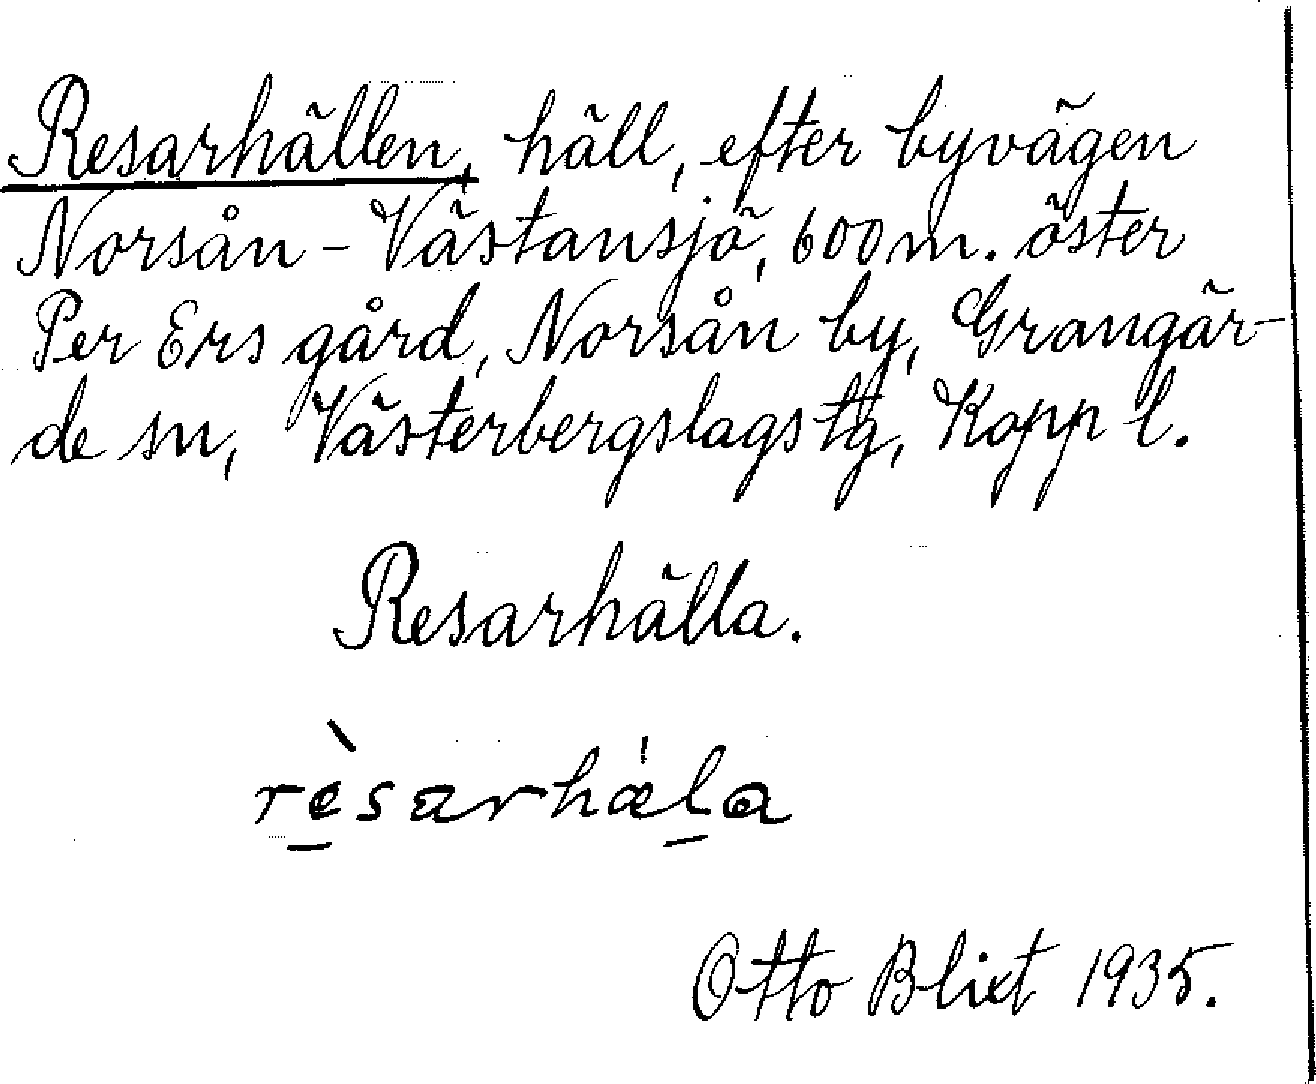 Resarhällen, häll, efter byvägen
Norsån - Västansjö, 600 m. öster
Per Ers gård, Norsån by, Grangär-
de sn, Västerbergslags tg, Kopp l.
Resarhälla.
rèsarhæ̍la
Otto Blixt 1935.